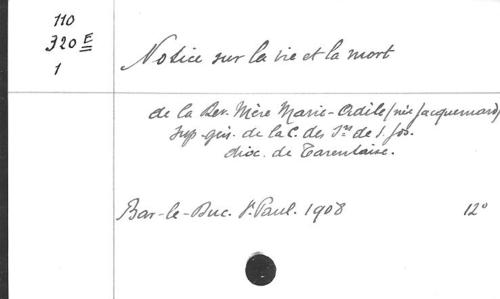 110
320 E
1
Notice sur la vie et la mort
de la Rev. Mère Marie-Odile (née Jacquemard)
Sup. gén. de la C. des Srs de S. Jos.
dioc. de Tarentaise.
Bar-le-Duc. St Paul. 1908 12°